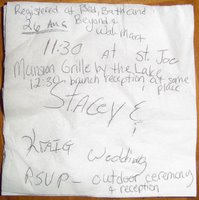 Registered at Bed, Bath and
Beyond &
26 Aug Walmart
11:30 at St. Joe
Mansion Grille by the Lake
12:30 - brunch reception at same
place
STACEY &
KRAIG
Wedding
RSVP - outdoor ceremony
& reception